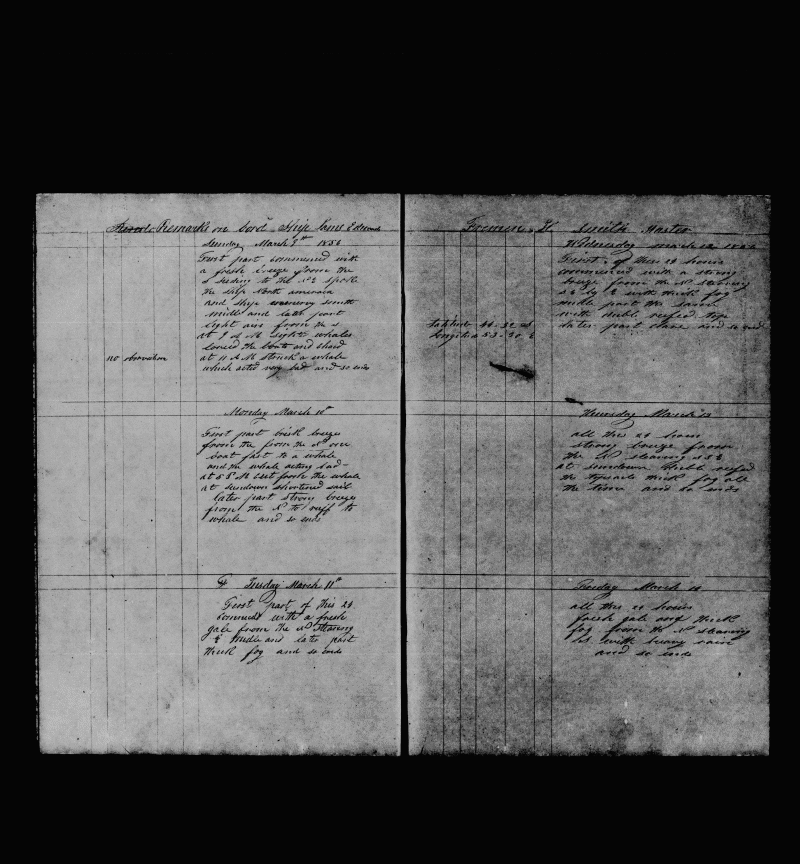 Remarks on bord Ship James Edward
Sunday March 9th 1856
First part commenced with
a fresh breeze from the
S steding to the NE spoke
the ship North america
and ship smith
midle and later part
light airs from the S
at 9 A M sight whales
lowed the boats and chasd
no obsivation
at 11 A M struck a whale
which acted very bad and so ends
Monday March 10th
First part brisk breeze
from the from the N one
boat fast to a whale
and the whale acting bad
at 5 P M cut from the whale
at sundown shortened sail
later part strong breeze
from the N to
whale and so ends
Tusday March 11th
First part of this 24
commenced with a fresh
gale from the N stearing
E midle and later part
thick fog and so ends
Freman H Smith Master
Wednesday march 12 1856
First of this 24 houres
commenced with a strong
breeze from the N stearing
with thick fog
midle part the same
with duble reefed tops
later part clare and so ends
Latitud 46-32
Longitud 53-30 E
Thursday March 13
all this 24 hours
strong breeze from
the N stearing S S E
at sundown duble reefed
the topsails thick fog all
the time and so ends
Friday March 14
all this 24 houres
fresh gale and thick
fog from the N stearing
with heavy rain
and so ends